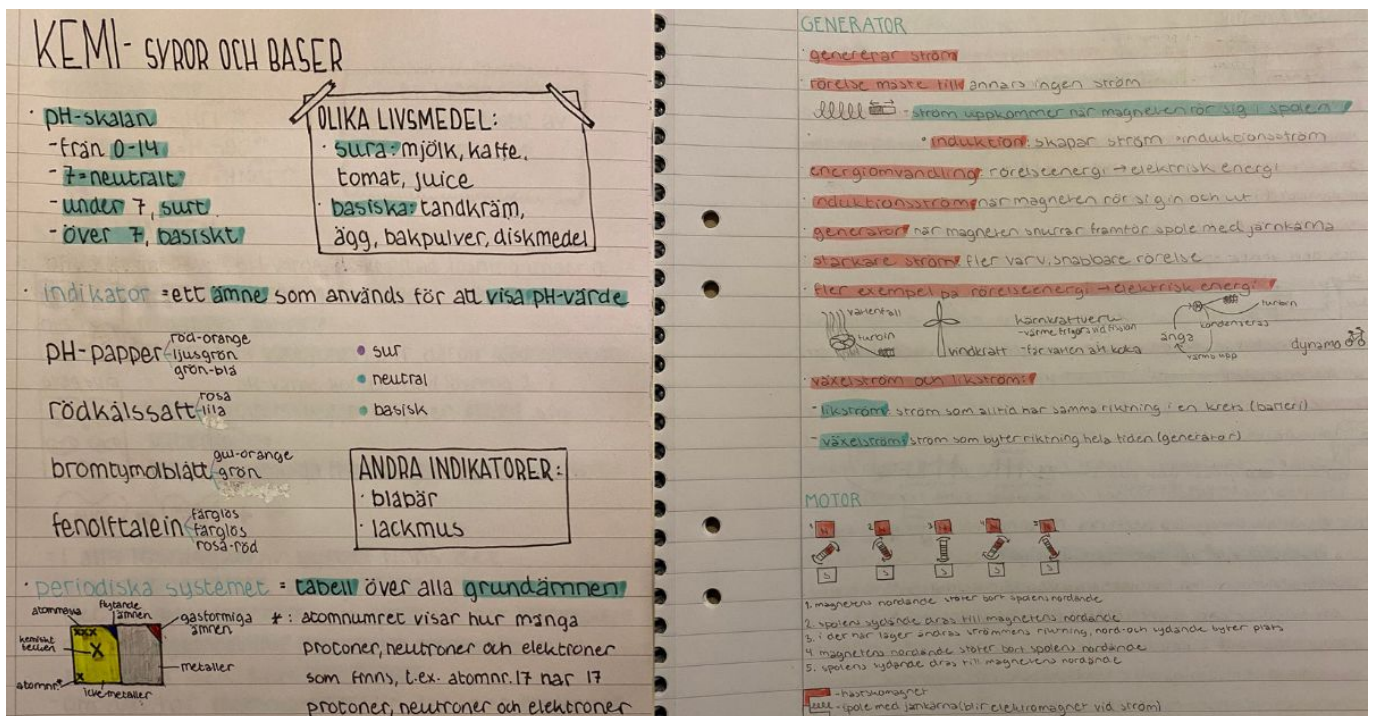 KEMI - SYROR OCH BASER
· pH-skalan
- från 0-14
- 7=neutralt
- under 7, surt
- över 7, basiskt
OLIKA LIVSMEDEL:
· sura: mjölk, kaffe,
tomat, juice
· basiska: tandkräm,
ägg, bakpulver, diskmedel
· indikator = ett ämne som används för att visa pH-värde
pH-papper
röd-orange
ljusgrön
grön-blå
rödkålssaft
rosa
lila
bromtymolblått
gul-orange
grön
fenolftalein
färglös
färglös
rosa-röd
• sur
• neutral
• basisk
ANDRA INDIKATORER:
· blåbär
· lackmus
· periodiska systemet = tabell över alla grundämnen
atommassa
flytande ämnen
gasformiga ämnen
kemiskt tecken
xxx
X
x
metaller
atomnr.*
icke-metaller
*: atomnumret visar hur många
protoner, neutroner och elektroner
som finns, t.ex. atomnr. 17 har 17
protoner, neutroner och elektroner
GENERATOR
· genererar ström
· rörelse måste till annars ingen ström
- ström uppkommer när magneten rör sig i spolen
* induktion: skapar ström = induktionsström
· energiomvandling: rörelseenergi → elektrisk energi
· induktionsström: när magneten rör sig in och ut
· generator: när magneten snurrar framför spole med järnkärna
· starkare ström: fler varv, snabbare rörelse
· fler exempel på rörelseenergi → elektrisk energi
vattenfall
turbin
vindkraft
kärnkraftverk
- värme frigörs vid fission
- får vatten att koka
ånga
turbin
kondenseras
värms upp
dynamo
· växelström och likström:
- likström: ström som alltid har samma riktning i en krets (batteri)
- växelström: ström som byter riktning hela tiden (generator)
MOTOR
1. N S
2. N S
3. N S
4. N S
5. N S
1. magnetens nordände stöter bort spolens nordände
2. spolens sydände dras till magnetens nordände
3. i det här läget ändras strömmens riktning, nord- och sydände byter plats
4. magnetens nordände stöter bort spolens nordände
5. spolens sydände dras till magnetens nordände
- hästskomagnet
- spole med järnkärna (blir elektromagnet vid ström)